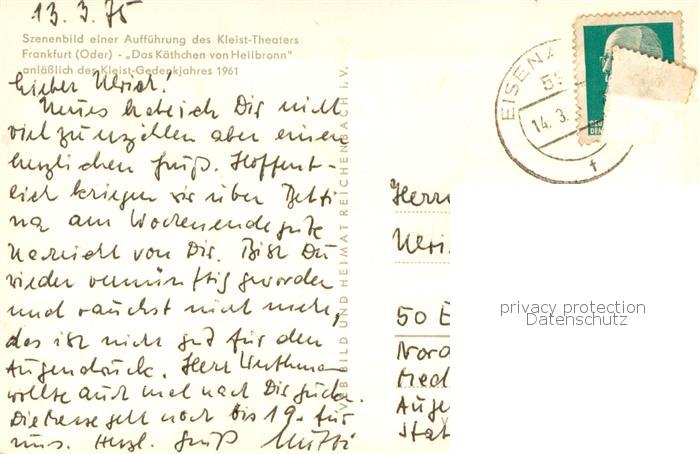 13.3.75
Szenenbild einer Aufführung des Kleist-Theaters
Frankfurt (Oder) - „Das Käthchen von Heilbronn"
anläßlich des Kleist-Gedenkjahres 1961
Lieber Ulrich!
Neues hab ich Dir nicht
viel zu erzählen aber einen
herzlichen Gruß. Hoffent-
lich kriegen wir über Betti
na am Wochenende gute
Nachricht von Dir. Bist Du
wieder vernünftig geworden
und rauchst nicht mehr,
das ist nicht gut für den
Augendruck. Herr
wollte auch mal nach Dir gucken.
Die Messe geht noch bis 19. für
uns. Herzl. Gruß Mutti
VEB BILD UND HEIMAT REICHENBACH i. V.
EISENA
14.3.
f
Herrn
Ulri
50 E
Nord
Med
Auge
Stat
privacy protection
Datenschutz